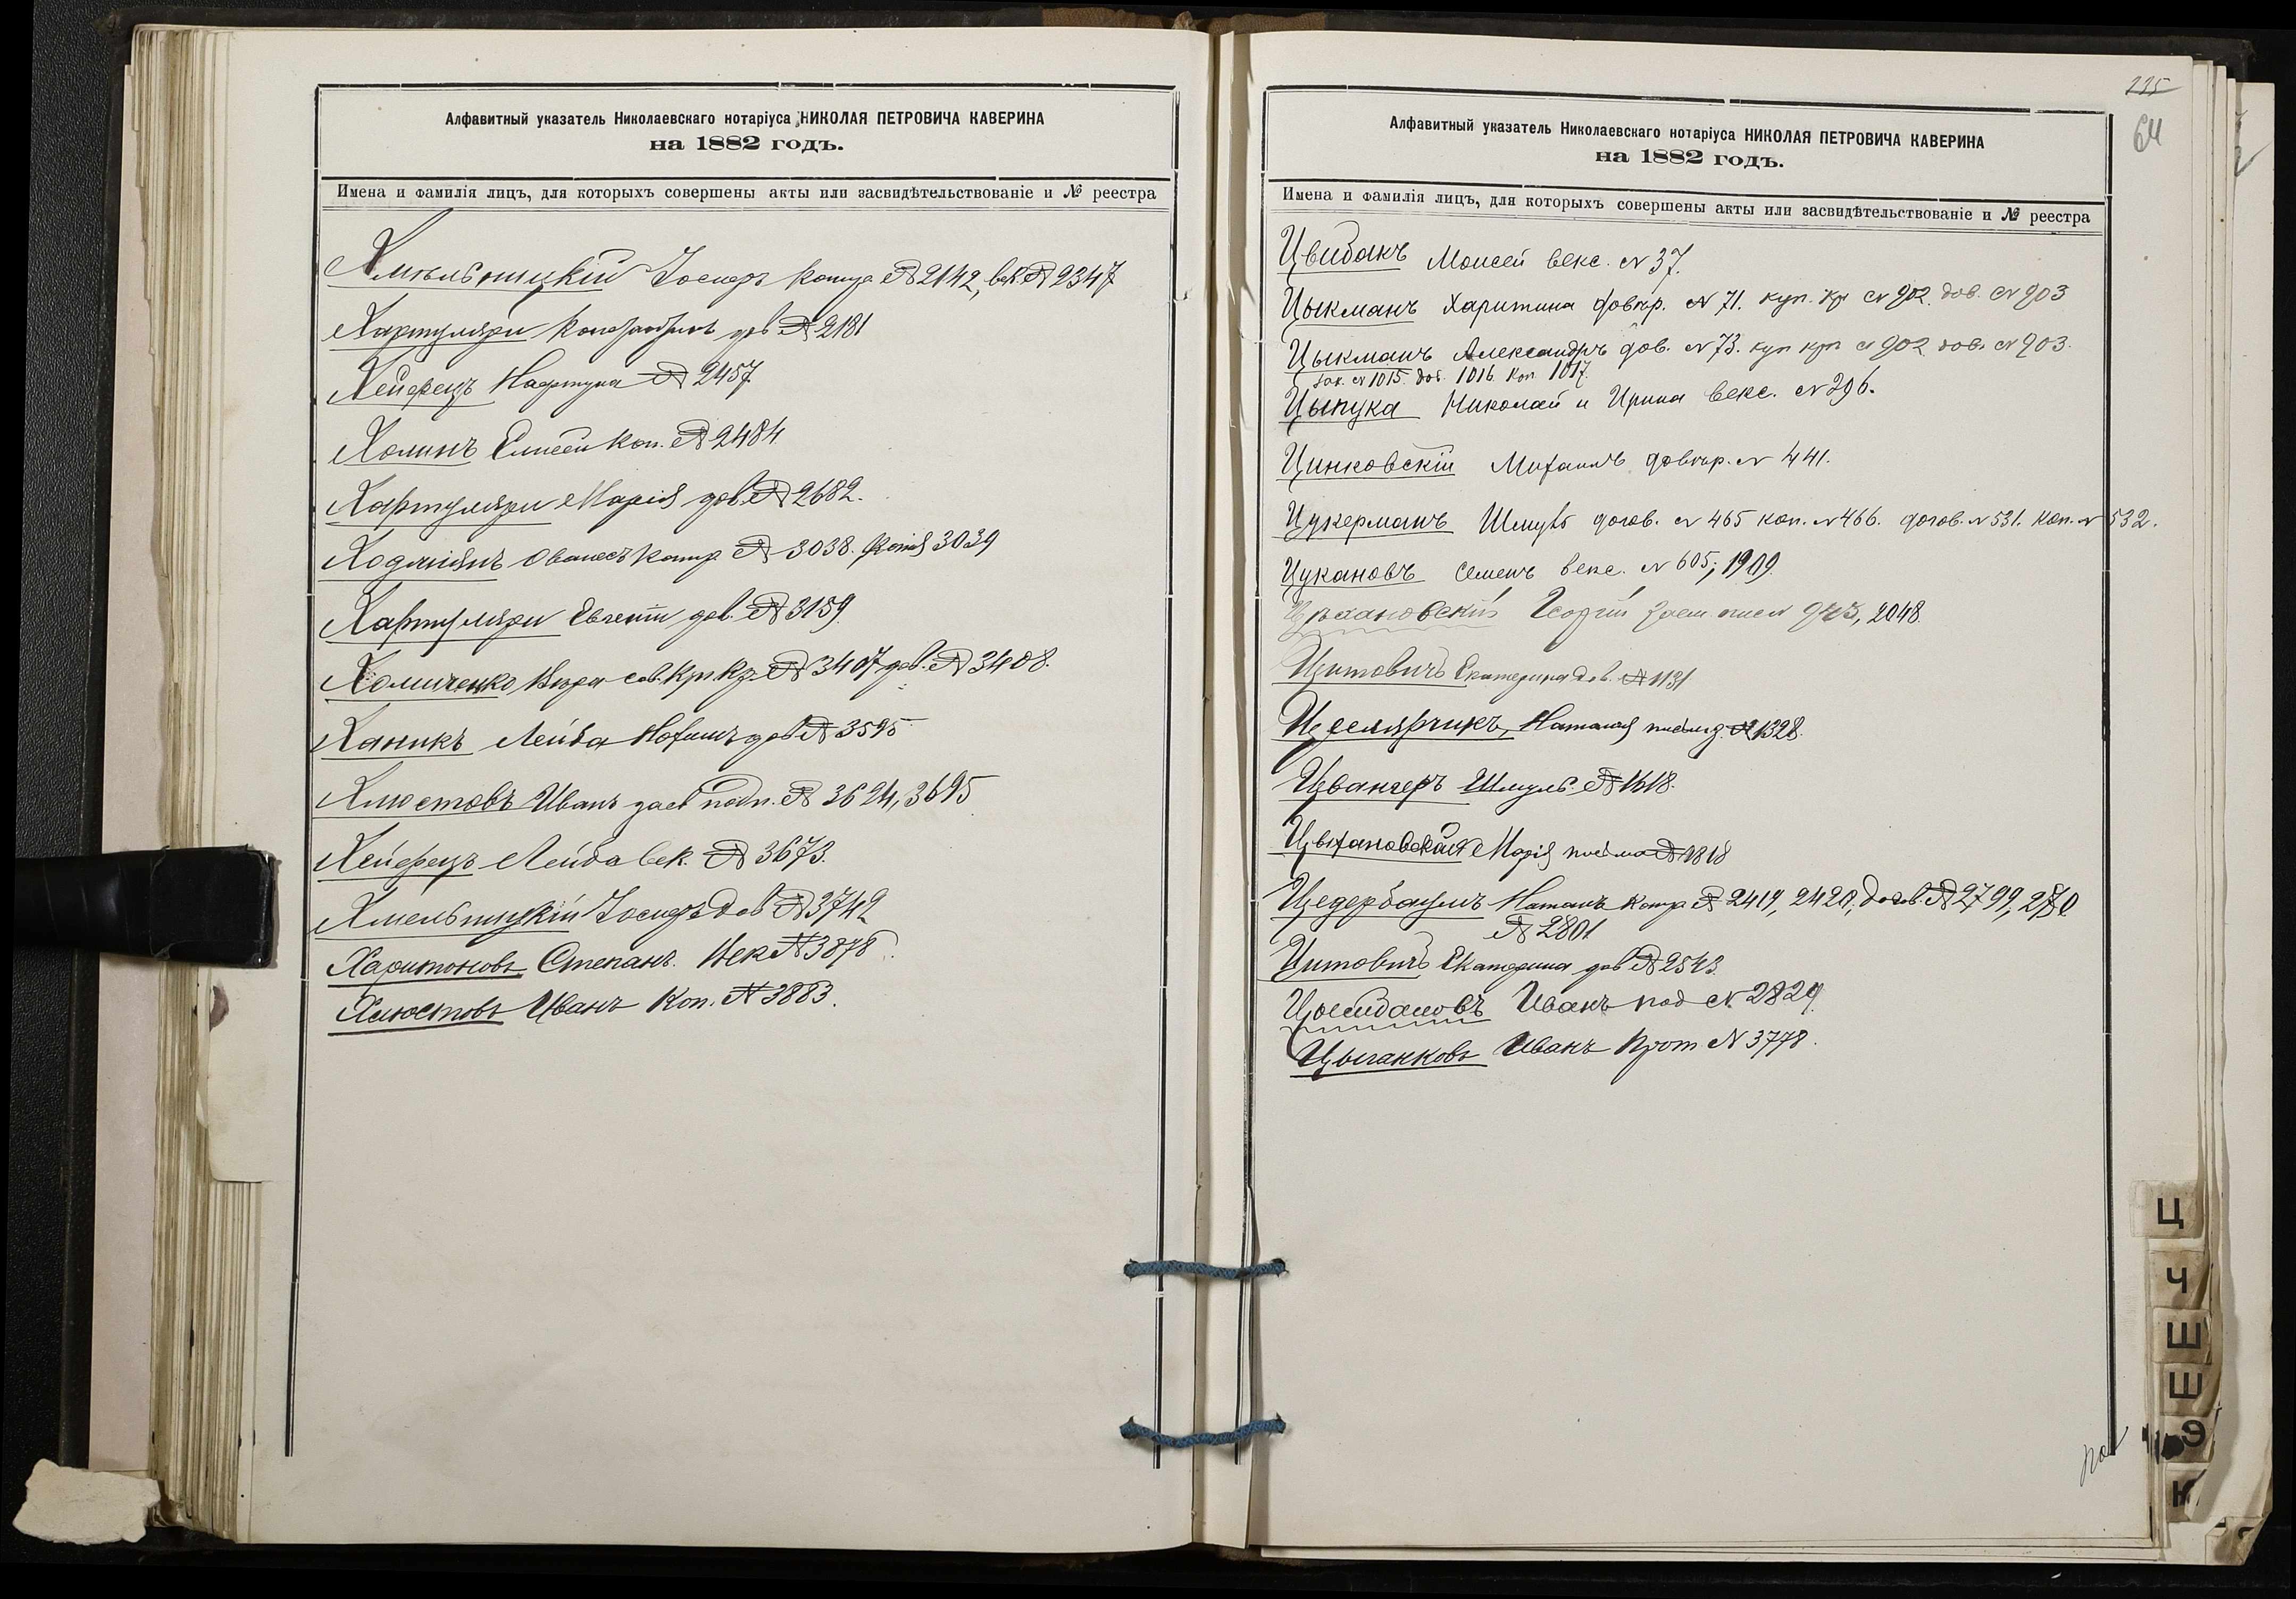 Алфавитный указатель Николаевскаго нотаріуса НИКОЛАЯ ПЕТРОВИЧА КАВЕРИНА
на 1882 годъ.
Имена и фамилія лицъ, для которыхъ совершены акты или засвидѣтельствованіе и № реестра
Хмѣльницкій Іосифъ контр № 2142, век. № 2347
Хартуляри Константинъ дов № 2181
Хейфецъ Нафтула № 2457
Холинъ Елисей коп. № 2484
Хартуляри Марія дов. № 2682.
Ходжіянъ Ованесъ контр № 3038. Копія 3039
Хартуляри Евгеній дов. № 3159.
Хомиченко Вѣра сов. Кр кр № 3407 дов. № 3408.
Ханикъ Лейба дов № 3595
Хлюстовъ Иванъ засв подп. № 3624, 3695
Хейфецъ Лейба век. № 3673.
Хмельницкій Іосифъ дов № 3742
Харитоновъ Степанъ. Век № 3878
Хлюстовъ Иванъ Коп. № 3883.
225
64
Алфавитный указатель Николаевскаго нотаріуса НИКОЛАЯ ПЕТРОВИЧА КАВЕРИНА
на 1882 годъ.
Имена и фамилія лицъ, для которыхъ совершены акты или засвидѣтельствованіе и № реестра
Цвибакъ Моисей векс. № 37.
Цыкманъ Харитина довѣр. № 71. куп. кр № 902. дов. № 903
Цыкманъ Александръ дов. № 73. куп кр № 902 дов. № 903.
№ 1015. дов. 1016 коп 1017.
Цыпука Николай и Ирина векс. № 296.
Цинковскій Михаилъ довѣр. № 441.
Цукерманъ Шмуль догов. № 465 коп. № 466. догов. № 531. коп. № 532.
Цукановъ Семенъ векс. № 605, 1909.
Георгій 943, 2048.
Цитовичъ Екатерина дов. № 1131
Цеслярчикъ, Наталія № 1328.
Цвангеръ Шмуль № 1618.
Цыхановская Марія письмо № 1818
Цедербаумъ Натанъ контр № 2419, 2420, догов. № 2799, 280
№ 2801
Цитовичъ Екатерина дов № 2543
Иванъ под № 2829.
Цыганковъ Иванъ Прот № 3778.
Ц
Ч
Ш
Щ
Э